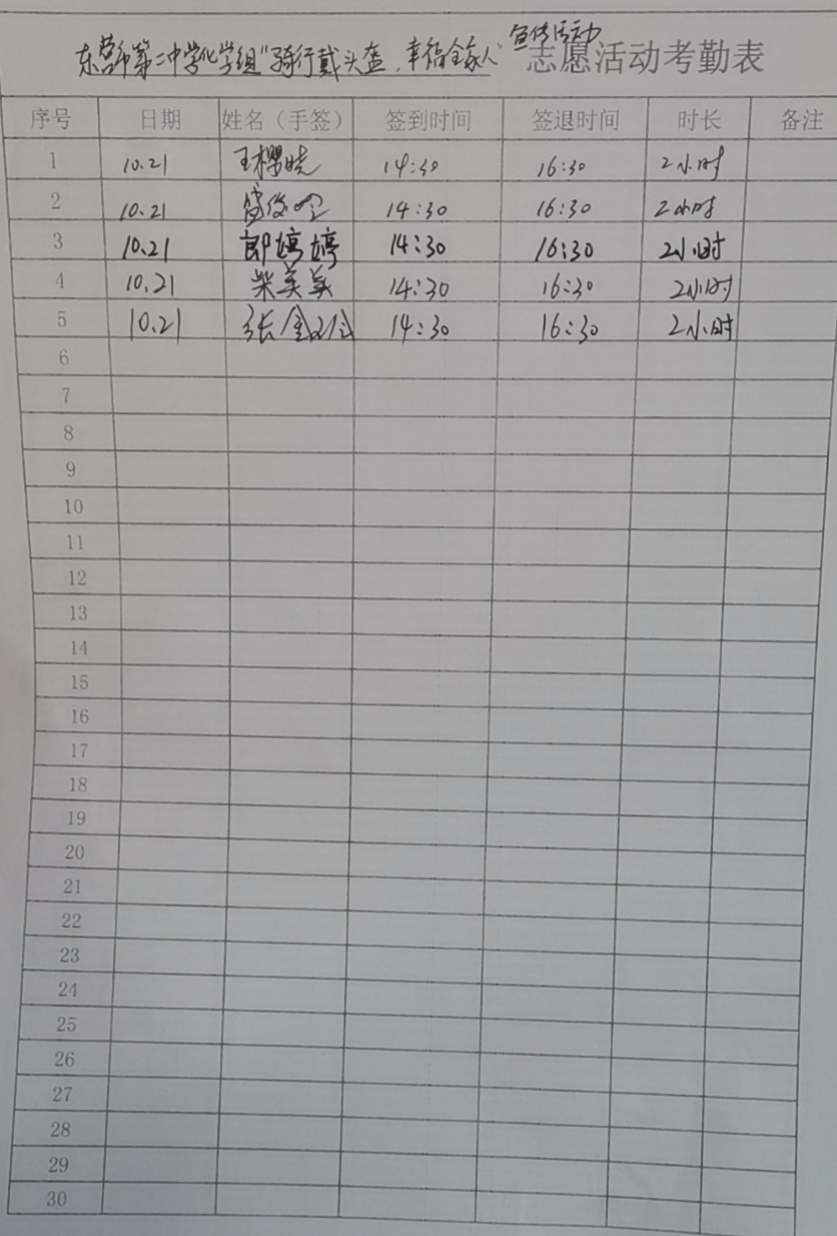 东营市第二中学化学组“骑行戴头盔，幸福全家人”宣传活动志愿活动考勤表
序号 日期 姓名（手签） 签到时间 签退时间 时长 备注
1 10.21 王樱晓 14:30 16:30 2小时
2 10.21 14:30 16:30 2小时
3 10.21 郎婷婷 14:30 16:30 2小时
4 10.21 柴美美 14:30 16:30 2小时
5 10.21 张 14:30 16:30 2小时
6
7
8
9
10
11
12
13
14
15
16
17
18
19
20
21
22
23
24
25
26
27
28
29
30